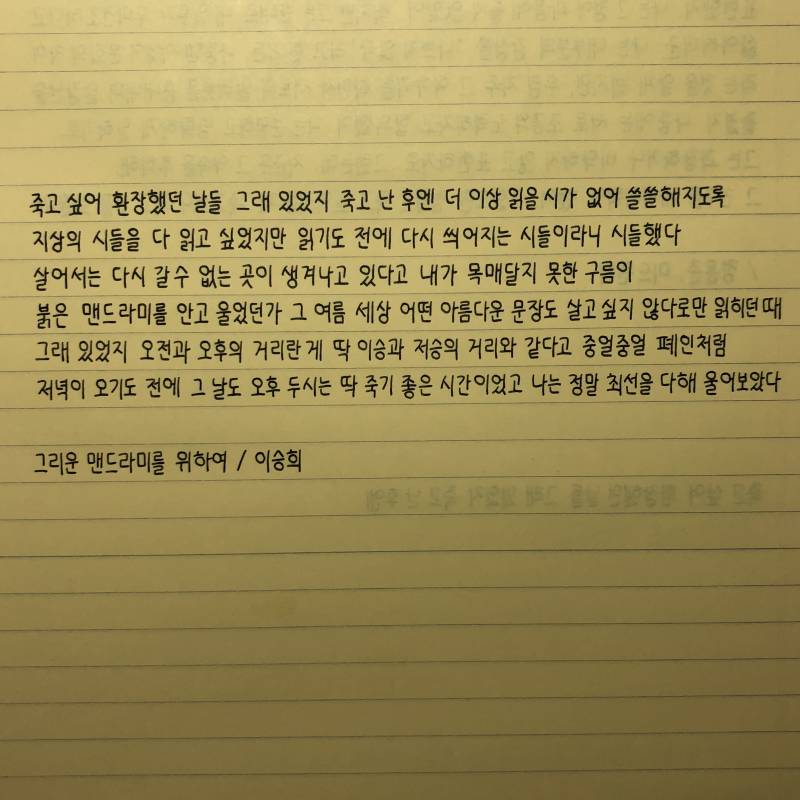 죽고 싶어 환장했던 날들 그래 있었지 죽고 난 후엔 더 이상 읽을 시가 없어 쓸쓸해지도록
지상의 시들을 다 읽고 싶었지만 읽기도 전에 다시 씌어지는 시들이라니 시들했다
살어서는 다시 갈 수 없는 곳이 생겨나고 있다고 내가 목매달지 못한 구름이
붉은 맨드라미를 안고 울었던가 그 여름 세상 어떤 아름다운 문장도 살고 싶지 않다로만 읽히던 때
그래 있었지 오전과 오후의 거리란 게 딱 이승과 저승의 거리와 같다고 중얼중얼 폐인처럼
저녁이 오기도 전에 그 날도 오후 두시는 딱 죽기 좋은 시간이었고 나는 정말 최선을 다해 울어보았다
그리운 맨드라미를 위하여 / 이승희